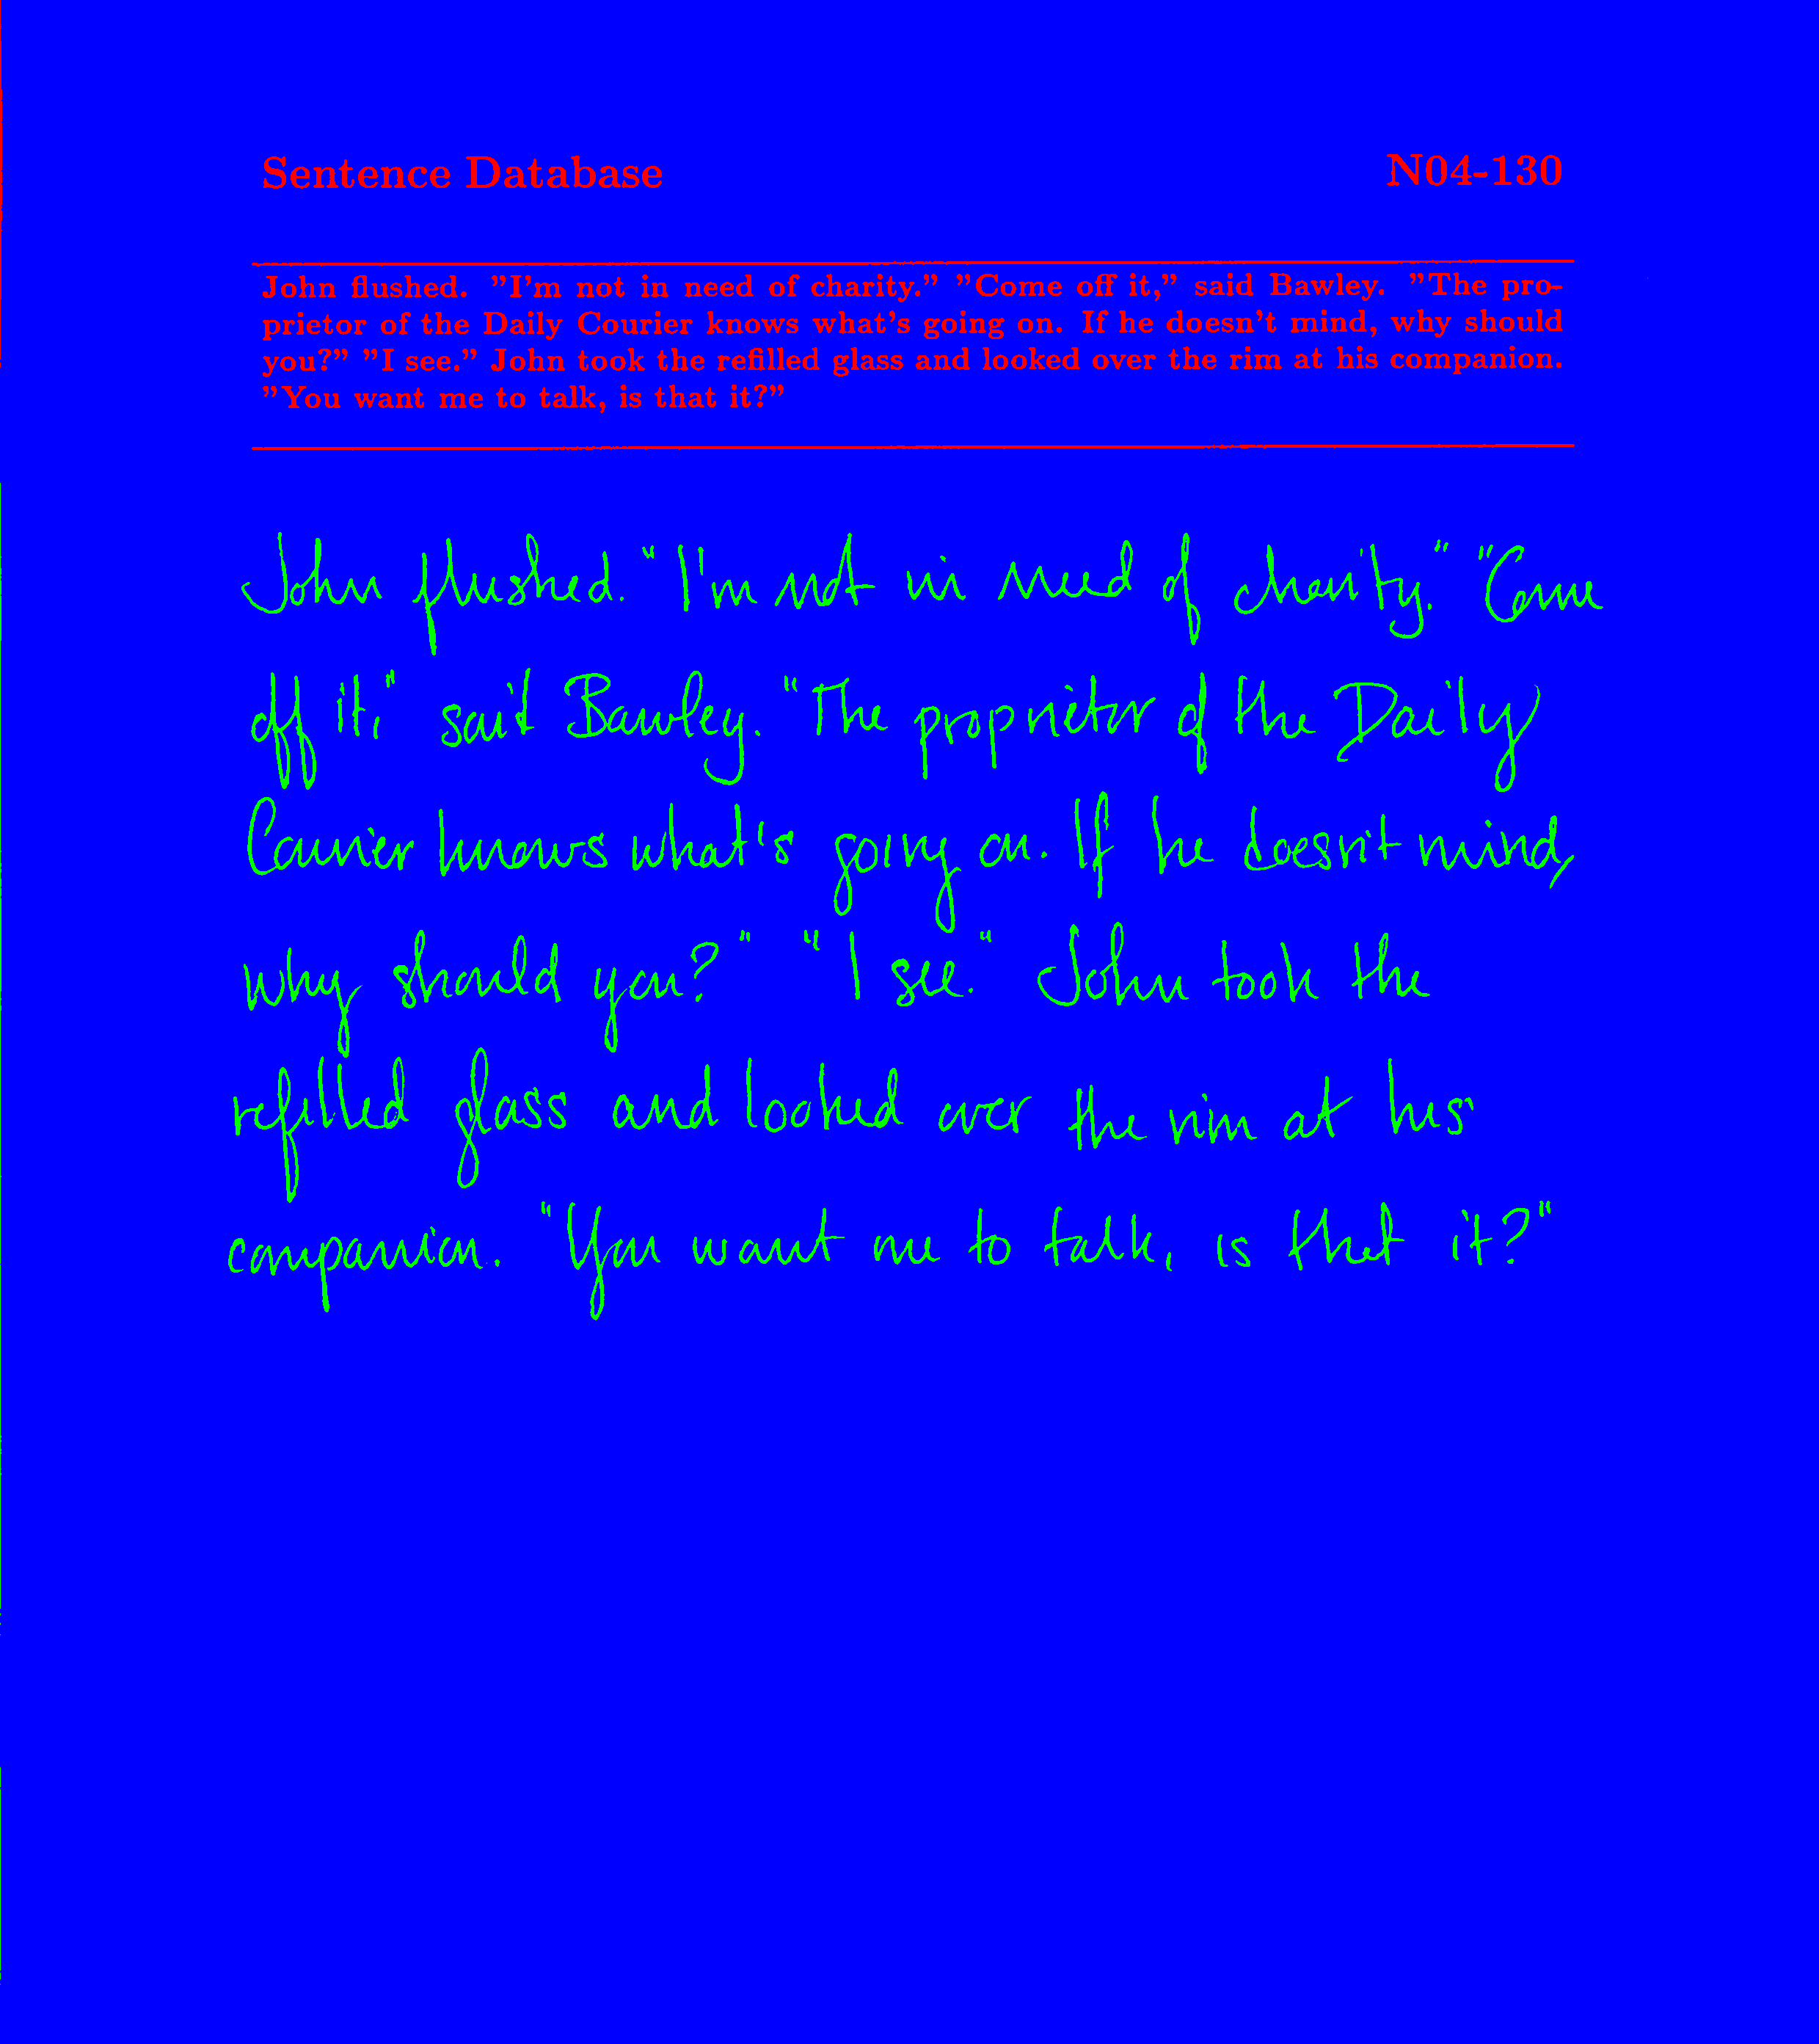 Sentence Database N04-130
John flushed. "I'm not in need of charity." "Come off it," said Bawley. "The pro-
prietor of the Daily Courier knows what's going on. If he doesn't mind, why should
you?" "I see." John took the refilled glass and looked over the rim at his companion.
"You want me to talk, is that it?"
John flushed. "I'm not in need of charity." "Come
off it," said Bawley. "The proprietor of the Daily
Courier knows what's going on. If he doesn't mind,
why should you?" "I see." John took the
refilled glass and looked over the rim at his
companion. "You want me to talk, is that it?"